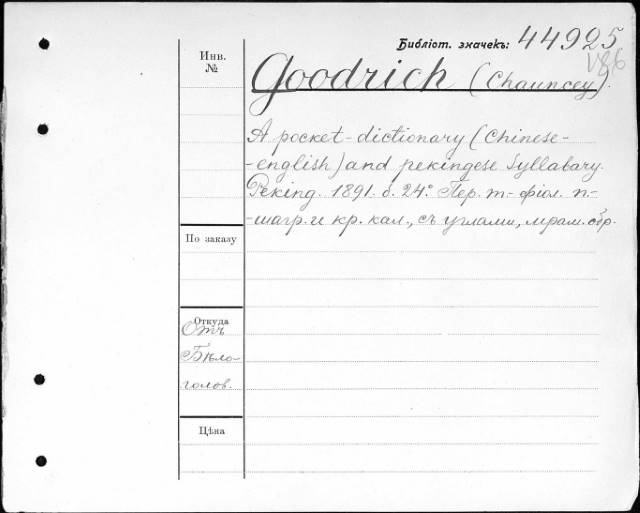 Библіот. значекъ: 44925
186
Инв.
№
Goodrich (Chauncey).
A pocket-dictionary (Chinese-
-english) and pekingese Syllabary.
Peking. 1891. б. 24º. Пер. т-фіол. п-
-шагр. и кр. кал., съ углами, мрам. обр.
По заказу
Откуда
Отъ
Бѣло-
голов.
Цѣна